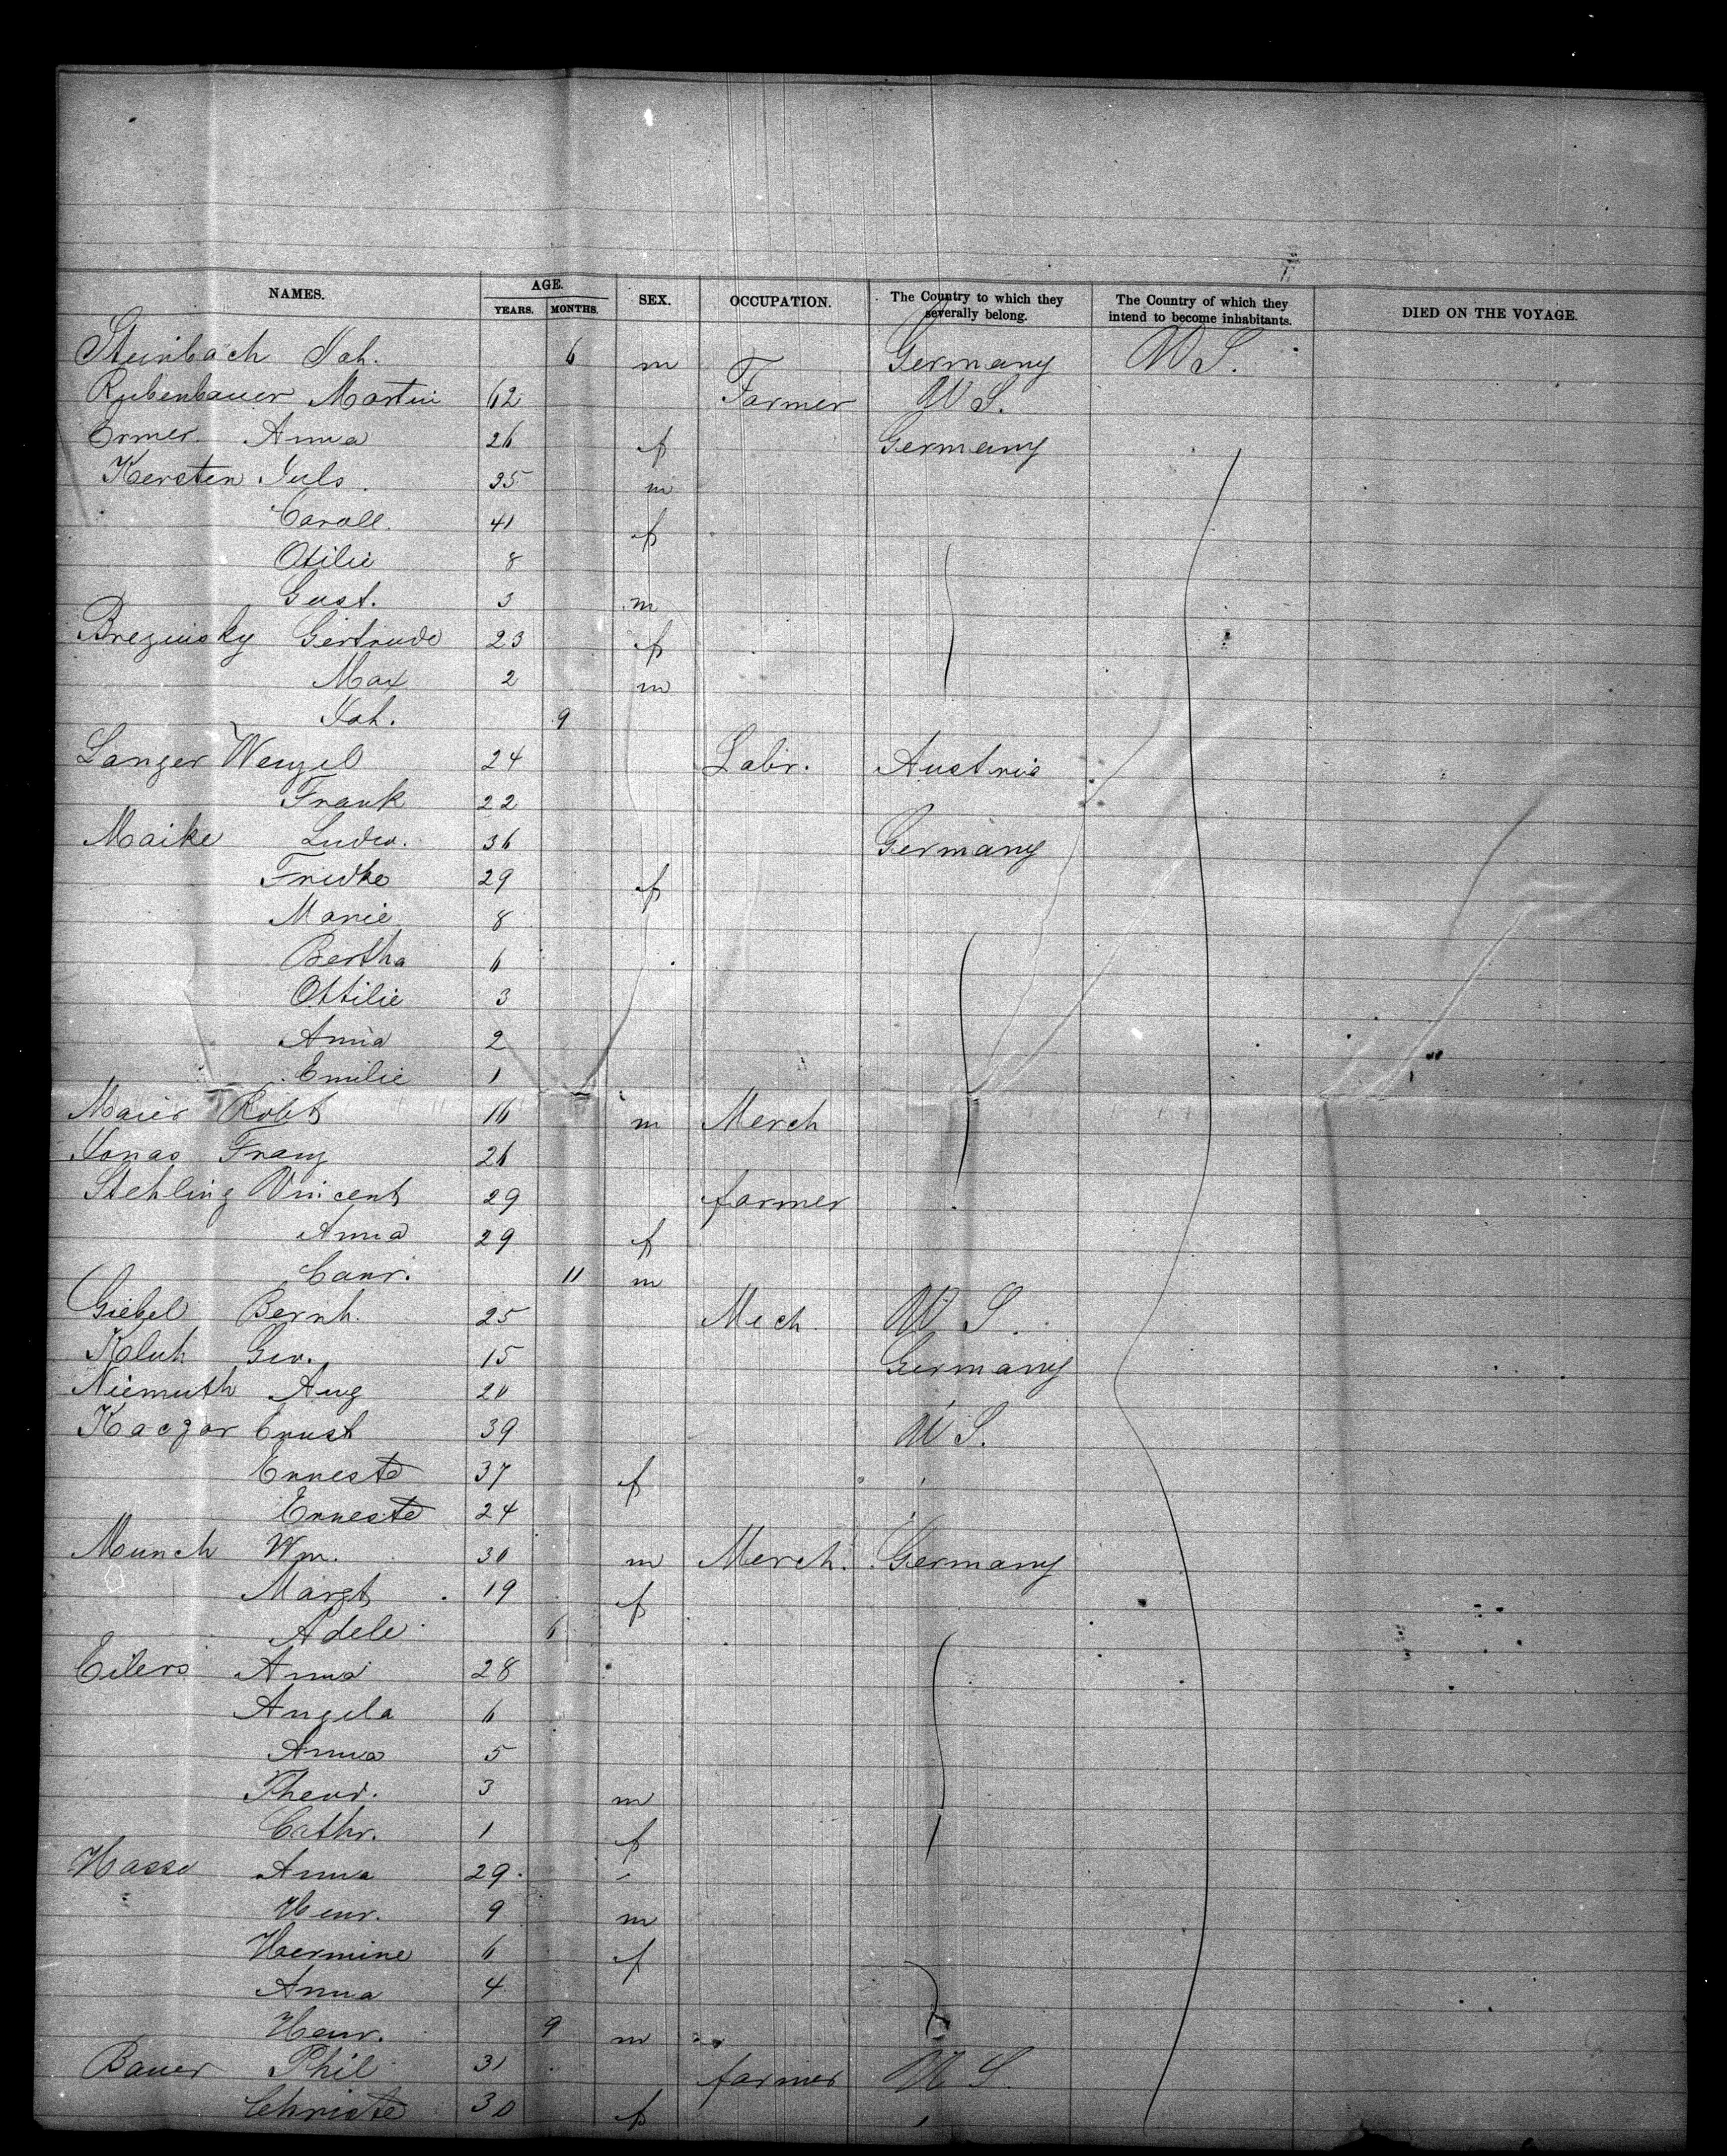 NAMES. AGE. YEARS. MONTHS. SEX. OCCUPATION. The Country to which they severally belong. The Country of which they intend to become inhabitants. DIED ON THE VOYAGE.
Steinbach Joh. 6 m Germany U S.
Rubenbauer Martin 62 Farmer U S.
Ermer Anna 26 f Germany
Kersten Juls. 35 m
Caroll. 41 f
Otilie 8
Gust. 3 m
Brezinsky Gertrude 23 f
Max 2 m
Joh. 9
Langer Wenzel 24 Labr. Austria
Frank 22
Maike Ludw. 36 Germany
Fridke 29 f
Marie 8
Bertha 6
Ottilie 3
Anna 2
Emilie 1
Maier Robt 16 m Merch
Jonas Franz 26
Stehling Vincent 29 farmer
Anna 29 f
Conr. 11 m
Giebel Bernh. 25 Mech. U S.
Kluh Geo. 15 Germany
Niemuth Aug 20
Kaczor Ernst 39 U S.
Erneste 37 f
Erneste 24
Munch Wm. 30 m Merch. Germany
Margt 19 f
Adele 6
Eilers Anna 28
Angela 6
Anna 5
Theod. 3 m
Cathr. 1 f
Hasse Anna 29
Henr. 9 m
Hermine 6 f
Anna 4
Henr. 9 m
Bauer Phil 31 farmer U S.
Christe 30 f